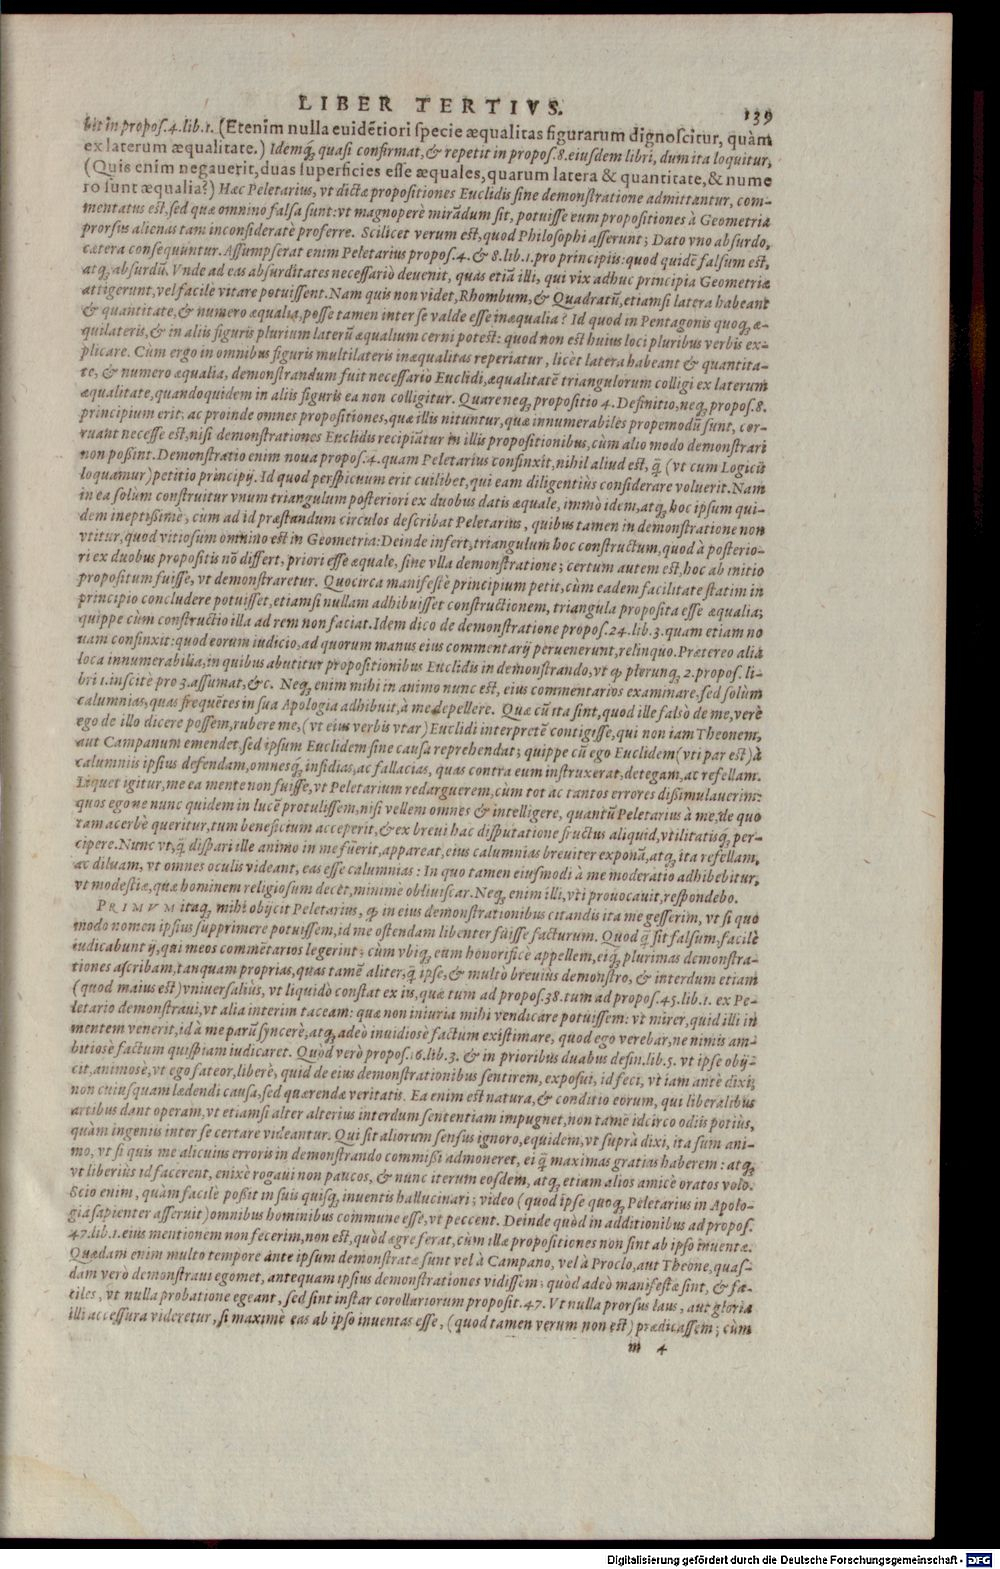 LIBER TERTIVS. 139
bit in propos.4.lib.1. (Etenim nulla euidẽtiori specie æqualitas figurarum dignoscitur, quàm
ex laterum æqualitate.) Idemq́; quasi confirmat, & repetit in propos.8.eiusdem libri, dum ita loquitur,
(Quis enim negauerit, duas superficies esse æquales, quarum latera & quantitate, & nume
ro sunt æqualia?) Hæc Peletarius, vt dictæ propositiones Euclidis sine demonstratione admittantur, com-
mentatus est, sed quæ omnino falsa sunt: vt magnoperè mirãdum sit, potuisse eum propositiones à Geometria
prorsus alienas tam inconsideratè proferre. Scilicet verum est, quod Philosophi asserunt; Dato vno absurdo,
cætera consequuntur. Assumpserat enim Peletarius propos.4. & 8. lib.1. pro principiis: quod quidẽ falsum est,
atq; absurdũ. Vnde ad eas absurditates necessariò deuenit, quas etiã illi, qui vix adhuc principia Geometriæ
attigerunt, vel facile vitare potuissent. Nam quis non videt, Rhombum, & Quadratũ, etiamsi latera habeant
& quantitate, & numero æqualia, posse tamen inter se valde esse inæqualia? Id quod in Pentagonis quoq; æ-
quilateris, & in aliis figuris plurium laterũ æqualium cerni potest: quod non est huius loci pluribus verbis ex-
plicare. Cùm ergo in omnibus figuris multilateris inæqualitas reperiatur, licèt latera habeant & quantita-
te, & numero æqualia, demonstrandum fuit necessariò Euclidi, æqualitatẽ triangulorum colligi ex laterum
æqualitate, quandoquidem in aliis figuris ea non colligitur. Quare neq; propositio 4. Definitio, neq; propos.8.
principium erit; ac proinde omnes propositiones, quæ illis nituntur, quæ innumerabiles propemodũ sunt, cor-
ruant necesse est, nisi demonstrationes Euclidis recipiãtur in illis propositionibus, cùm alio modo demonstrari
non poßint. Demonstratio enim noua propos.4. quam Peletarius confinxit, nihil aliud est, q̃ (vt cum Logicis
loquamur) petitio principij. Id quod perspicuum erit cuilibet, qui eam diligentiùs considerare voluerit. Nam
in ea solùm construitur vnum triangulum posteriori ex duobus datis æquale, immò idem, atq; hoc ipsum qui-
dem ineptißimè, cum ad id præstandum circulos describat Peletarius, quibus tamen in demonstratione non
vtitur, quod vitiosum omnino est in Geometria: Deinde infert, triangulum hoc constructum, quod à posterio-
ri ex duobus propositis nõ differt, priori esse æquale, sine vlla demonstratione; certum autem est, hoc ab initio
propositum fuisse, vt demonstraretur. Quocirca manifestè principium petit, cùm eadem facilitate statim in
principio concludere potuisset, etiamsi nullam adhibuisset constructionem, triangula proposita esse æqualia;
quippe cùm constructio illa ad rem non faciat. Idem dico de demonstratione propos.24.lib.3. quam etiam no
uam confinxit: quod eorum iudicio, ad quorum manus eius commentarij peruenerunt, relinquo. Prætereo alia
loca innumerabilia, in quibus abutitur propositionibus Euclidis in demonstrando, vt ꝙ plerunq; 2. propos. li-
bri 1. inscitè pro 3. assumat, &c. Neq; enim mihi in animo nunc est, eius commentarios examinare, sed solùm
calumnias, quas frequẽtes in sua Apologia adhibuit, à me depellere. Quæ cũ ita sint, quod ille falsò de me, verè
ego de illo dicere possem, rubere me, (vt eius verbis vtar) Euclidi interpretẽ contigisse, qui non iam Theonem,
aut Campanum emendet, sed ipsum Euclidem sine causa reprehendat; quippe cũ ego Euclidem (vti par est) à
calumniis ipsius defendam, omnesq́; insidias, ac fallacias, quas contra eum instruxerat, detegam, ac refellam.
Liquet igitur, me ea mente non fuisse, vt Peletarium redarguerem, cùm tot ac tantos errores dißimulauerim:
quos ego ne nunc quidem in lucẽ protulissem, nisi vellem omnes & intelligere, quantũ Peletarius à me, de quo
tam acerbè queritur, tum beneficium acceperit, & ex breui hac disputatione fructus aliquid, vtilitatisq́; per-
cipere. Nunc vt, q̃ dispari ille animo in me fuerit, appareat, eius calumnias breuiter exponã, atq; ita refellam,
ac diluam, vt omnes oculis videant, eas esse calumnias: In quo tamen eiusmodi à me moderatio adhibebitur,
vt modestiæ, quæ hominem religiosum decet, minimè obliuiscar. Neq; enim illi, vti prouocauit, respondebo.
PRIMVM itaq; mihi obijcit Peletarius, ꝙ in eius demonstrationibus citandis ita me gesserim, vt si quo
modo nomen ipsius supprimere potuissem, id me ostendam libenter fuisse facturum. Quod q̃ sit falsum, facilè
iudicabunt ij, qui meos commẽtarios legerint; cùm vbiq; eum honorificè appellem, eiq́; plurimas demonstra-
tiones ascribam, tanquam proprias, quas tamẽ aliter, q̃ ipse, & multò breuiùs demonstro, & interdum etiam
(quod maius est) vniuersaliùs, vt liquidò constat ex iis, quæ tum ad propos.38. tum ad propos.45.lib.1. ex Pe-
letario demonstraui, vt alia interim taceam: quæ non iniuria mihi vendicare potuissem: vt mirer, quid illi in
mentem venerit, id à me parũ syncerè, atq; adeò inuidiosè factum existimare, quod ego verebar, ne nimis am-
bitiosè factum quispiam iudicaret. Quòd verò propos.16.lib.3. & in prioribus duabus defin.lib.5. vt ipse obij-
cit, animosè, vt ego fateor, liberè, quid de eius demonstrationibus sentirem, exposui, id feci, vt iam antè dixi,
non cuiusquam lædendi causa, sed quærendæ veritatis. Ea enim est natura, & conditio eorum, qui liberalibus
artibus dant operam, vt etiamsi alter alterius interdum sententiam impugnet, non tamẽ idcirco odiis potiùs,
quàm ingeniis inter se certare videantur. Qui sit aliorum sensus ignoro, equidem, vt suprà dixi, ita sum ani-
mo, vt si quis me alicuius erroris in demonstrando commißi admoneret, ei q̃ maximas gratias haberem: atq;
vt liberiùs id facerent, enixè rogaui non paucos, & nunc iterum eosdem, atq; etiam alios amicè oratos volo.
Scio enim, quàm facilè poßit in suis quisq; inuentis hallucinari; video (quod ipse quoq; Peletarius in Apolo-
gia sapienter asseruit) omnibus hominibus commune esse, vt peccent. Deinde quòd in additionibus ad propos.
47.lib.1. eius mentionem non fecerim, non est, quòd ægre ferat, cùm illæ propositiones non sint ab ipso inuentæ.
Quædam enim multo tempore ante ipsum demonstratæ sunt vel à Campano, vel à Proclo, aut Theone, quas-
dam verò demonstraui egomet, antequam ipsius demonstrationes vidissem; quòd adeò manifestæ sint, & fa-
ciles, vt nulla probatione egeant, sed sint instar corollariorum proposit.47. Vt nulla prorsus laus, aut gloria
illi accessura videretur, si maximè eas ab ipso inuentas esse, (quod tamen verum non est) prædicassem; cùm
m 4
Digitalisierung gefördert durch die Deutsche Forschungsgemeinschaft - DFG